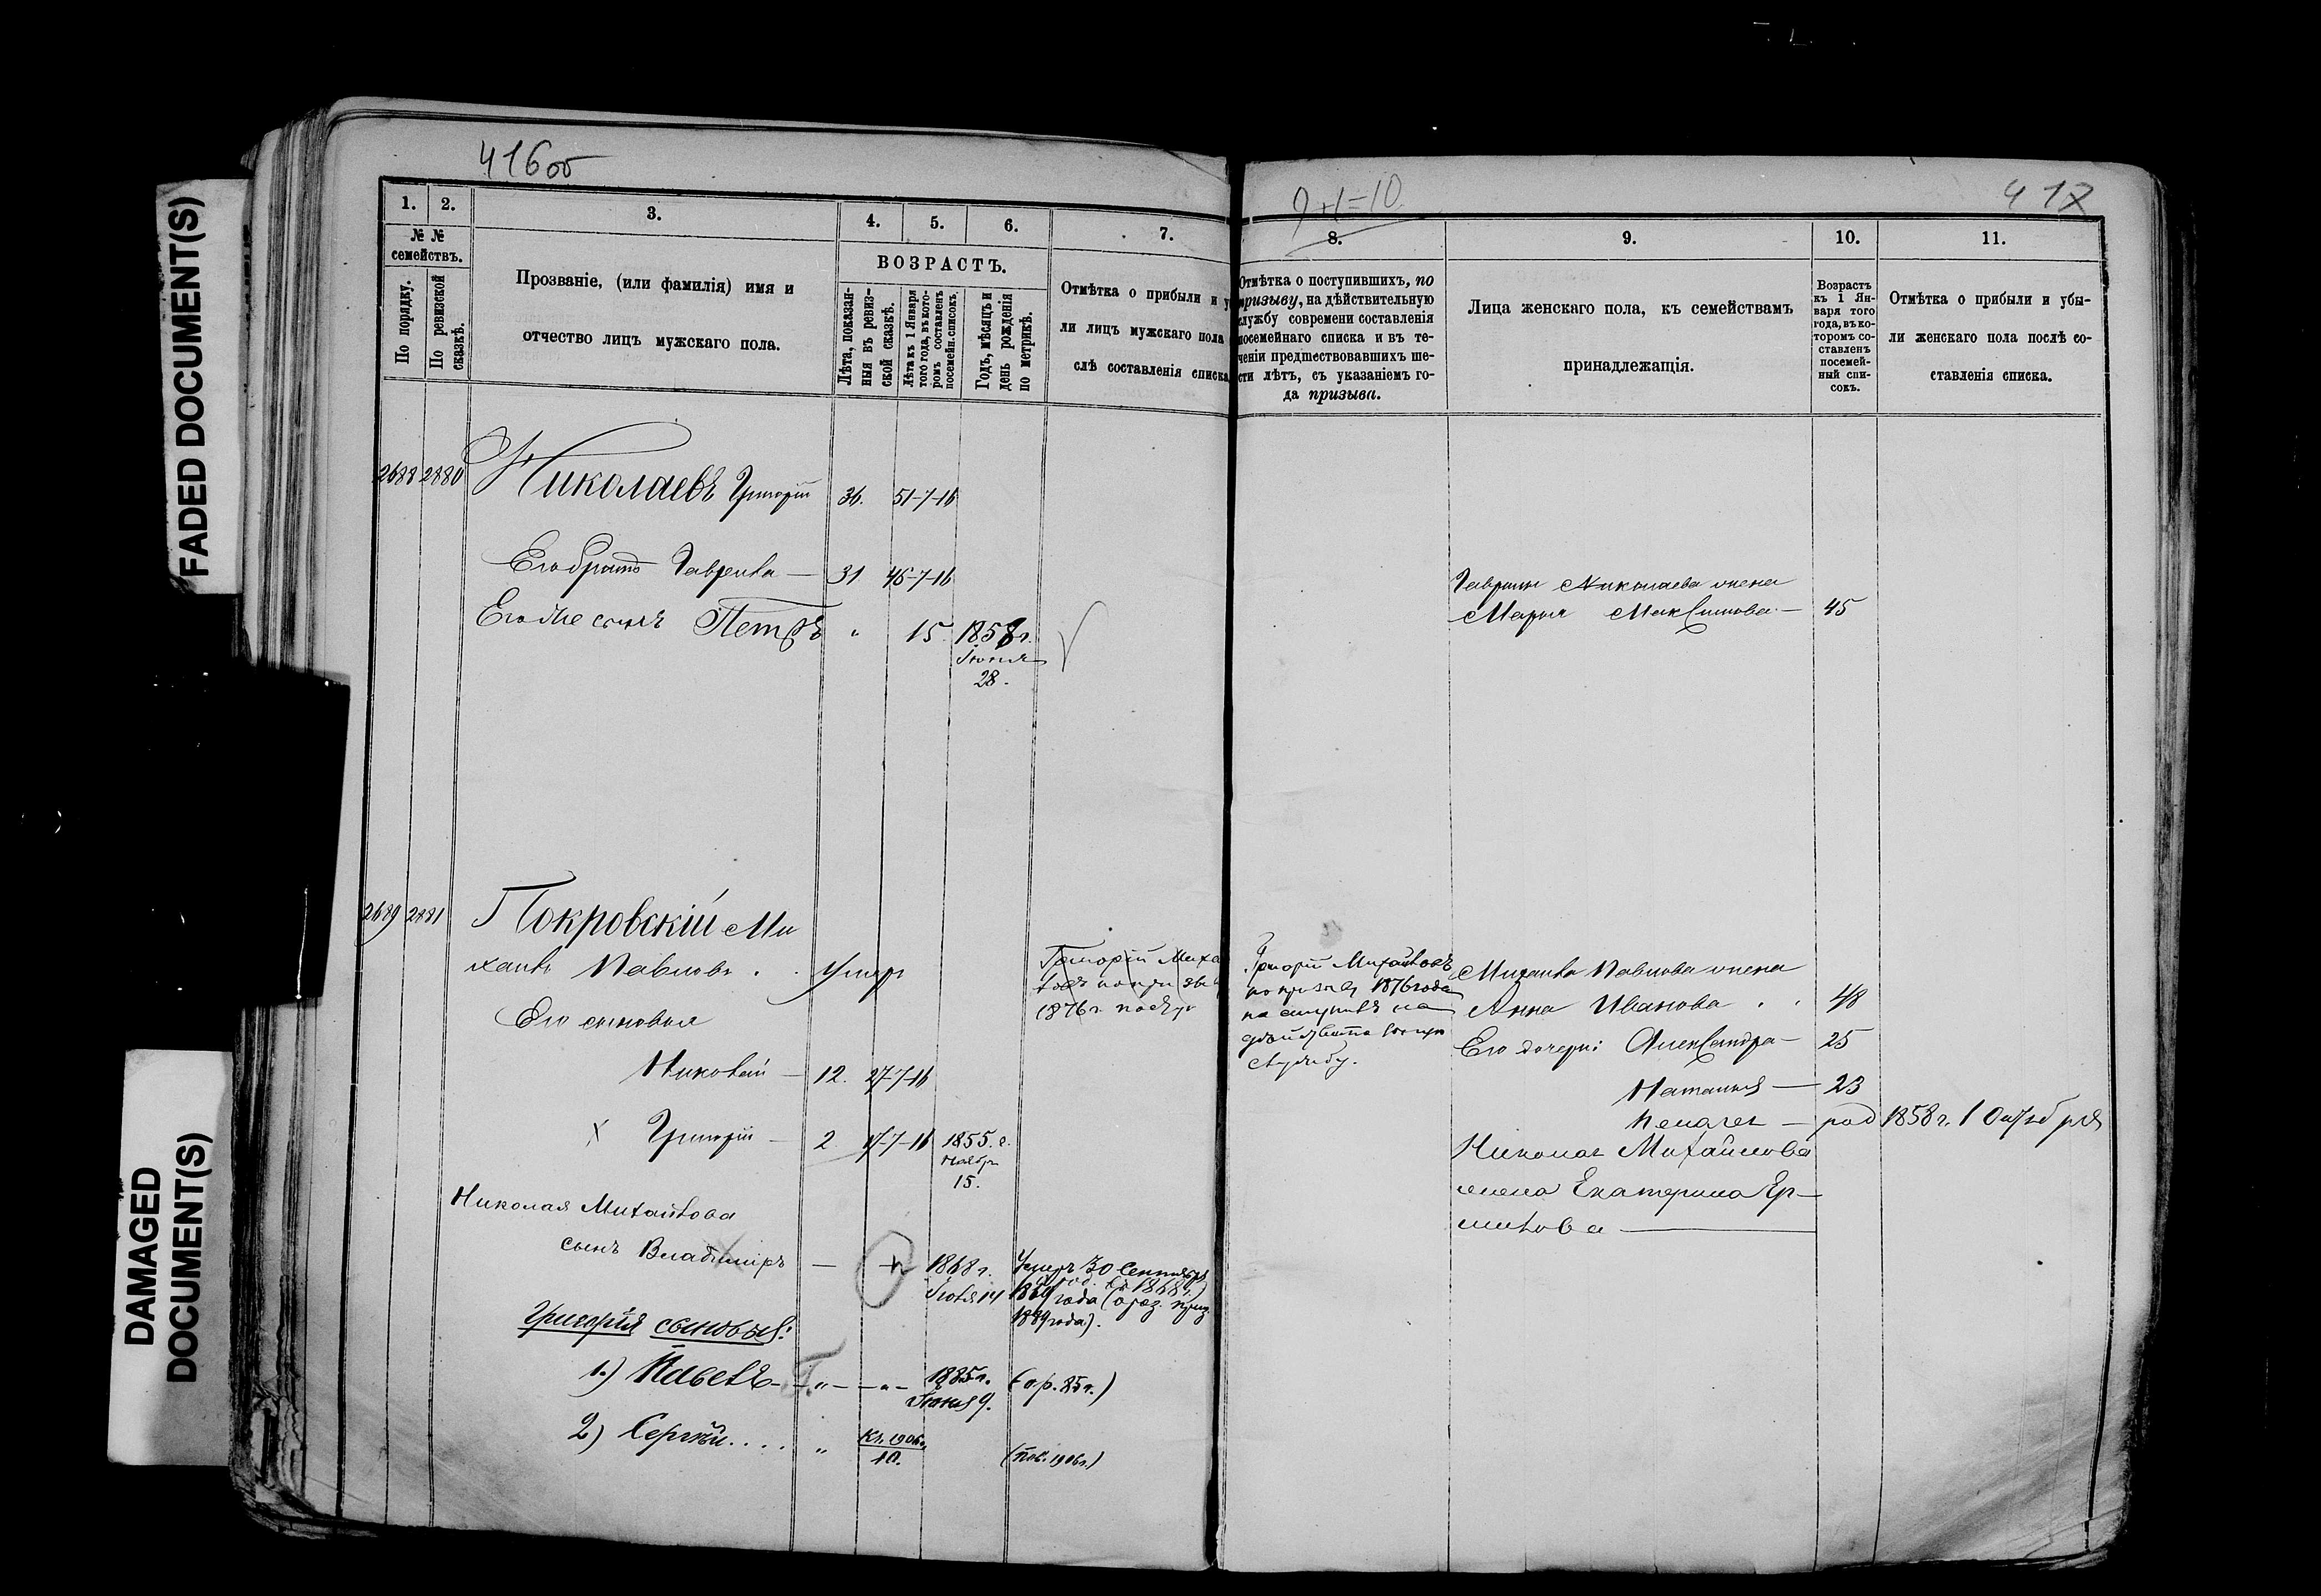 FADED DOCUMENT(S)
DAMAGED
DOCUMENT(S)
416об
1.
2.
3.
4.
5.
6.
7.
№ №
семействъ.
По порядку.
По ревизской
сказкѣ.
Прозваніе, (или фамилія) имя и
отчество лицъ мужскаго пола.
ВОЗРАСТЪ.
Лѣта, показан-
ныя въ ревиз-
ской сказкѣ.
Лѣта къ 1 Января
того года, въ кото-
ромъ составленъ
посемейн. списокъ.
Годъ, мѣсяцъ и
день рожденія
по метрикѣ.
Отмѣтка о прибыли и у
ли лицъ мужскаго пола
слѣ составленія списка
2688 2880 Николаевъ Григорій 36. 51-7-16
Его братъ Гаврила — 31 46-7-16
Его же сынъ Петръ " 15 1858г.
Іюня
28.
2689 2881 Покровскій Ми
хаилъ Павловъ . . Умеръ
Его сыновья
Николай — 12. 27-7-16
х Григорій — 2 17-7-16 1855.г.
Ноябр
15.
Григорій Миха
1876г.
Николая Михайлова
сынъ Владиміръ — 1868г.
Іюля 14
Умеръ 30 Сентября
1869 года
1889 года).
Григорія сыновья:
1.) Павелъ — " — " — 1885г. (пр. 85г.)
Іюня 9.
2) Сергѣй.... " Къ 1906г. (пов. 1906г.)
10.
9+1=10
417
8.
9.
10.
11.
Отмѣтка о поступившихъ, по
призыву, на дѣйствительную
службу современи составленія
посемейнаго списка и въ те-
ченіи предшествовавшихъ ше-
сти лѣтъ, съ указаніемъ го-
да призыва.
Лица женскаго пола, къ семействамъ
принадлежащія.
Возрастъ
къ 1 Ян-
варя того
года, въ ко-
торомъ со-
ставленъ
посемей-
ный спи-
сокъ.
Отмѣтка о прибыли и убы-
ли женскаго пола послѣ со-
ставленія списка.
Гаврилы Николаева жена
Марья Максимова — 45
Григорій Михайловъ
по призыву 1876 года
поступилъ на
дѣйствит. военную
службу.
Михаила Павлова жена
Анна Иванова . . 48
Его дочери: Александра — 25
Наталья — 23
Пелагея — род 1858г. 1 Октября
Николая Михайлова
жена Екатерина Ер-
милова